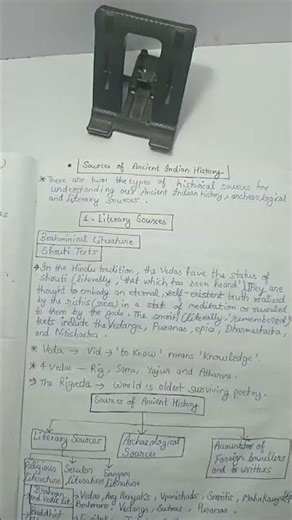 • Sources of Ancient Indian History
* There are two types of historical sources for
understanding our Ancient Indian history, archaeological
and literary sources.
1. Literary Sources
Brahminical Literature
Shruti Texts
→ In the Hindu tradition, the Vedas have the status of
Shruti (literally, 'that which has been heard'). They are
thought to embody an eternal, self-existent truth realized
by the rishis (seers) in a state of meditation or revealed
to them by the gods. The smriti (literally 'remembered')
texts include the Vedanga, Puranas, epics, Dharmashastra,
and Nitishastra.
* Veda → Vid → 'to Know' means 'Knowledge'.
* 4 Vedas — Rig, Sama, Yajur and Atharva.
→ The Rigveda → World is oldest surviving poetry.
Sources of Ancient History
Literary Sources
Archaeological Sources
Accounts of Foreign travellers and writers
Religious Literature
Secular Literature
Sangam Literature
→ Vedas, Aranyak's, Upanishads, Smritis,
Vedanga, Sutras, Puranas.
Buddhist